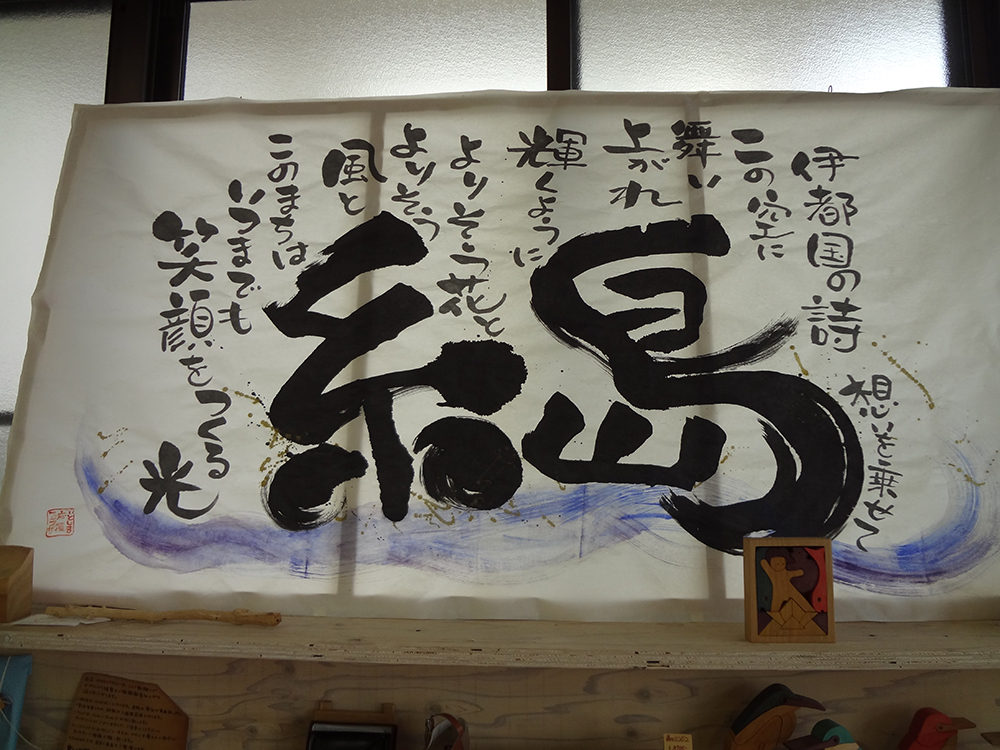 糸島
伊都国の詩
想いを乗せて
この空に
舞い
上がれ
輝くように
よりそう花と
よりそう
風と
このまちは
いつまでも
笑顔をつくる
光